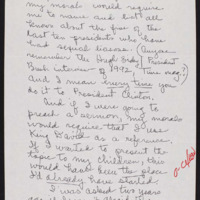 my morals would require
me to name and list all
know about the five of the
last ten presidents who have
had sexual liaisons! (Anyone
remember the Hugh Sidey President
Bush interview of 1992, Time mag?)
And I mean every time you
do it to President Clinton.
And if I were going to
preach a sermon, my morals
would require that I use
King David as a reference.
If I wanted to present the
topic to my children, this
would have been the place
I'd already have started.
I was asked two years